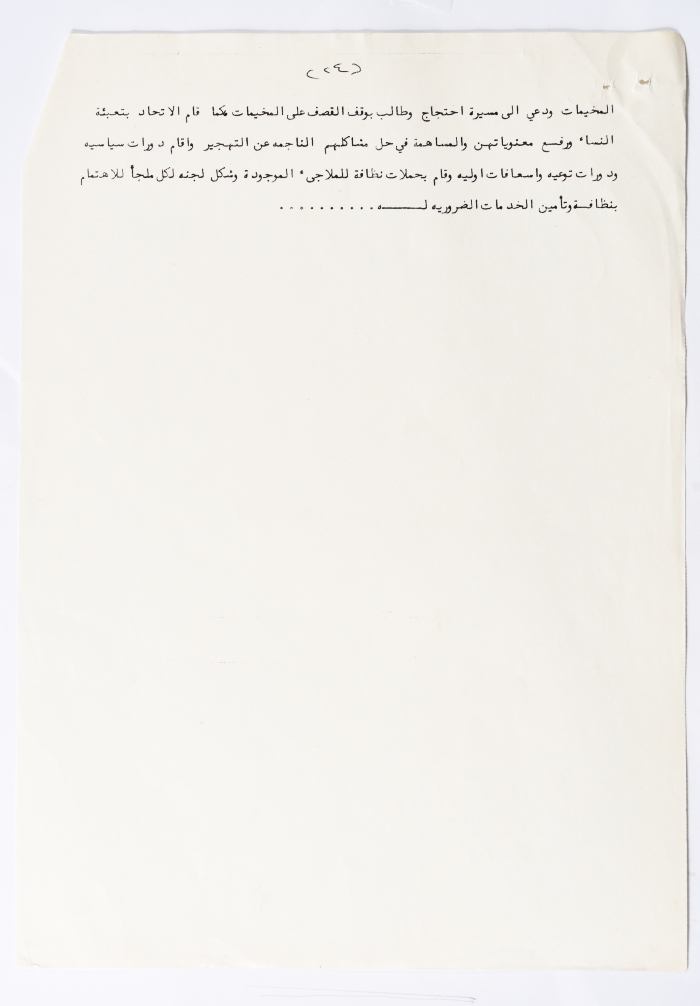 (٢٤)
المخيمات ودعي الى مسيرة احتجاج وطالب بوقف القصف على المخيمات ،كما قام الاتحاد بتعبئة
النساء ورفع معنوياتهن والمساهمة في حل مشاكلهم الناجمه عن التهجير واقام دورات سياسيه
ودورات توعيه واسعافات اوليه وقام بحملات نظافة للملاجىء الموجودة وشكل لجنه لكل ملجأ للاهتمام
بنظافة وتأمين الخدمات الضروريه لـــــه . . . . . . . . . .